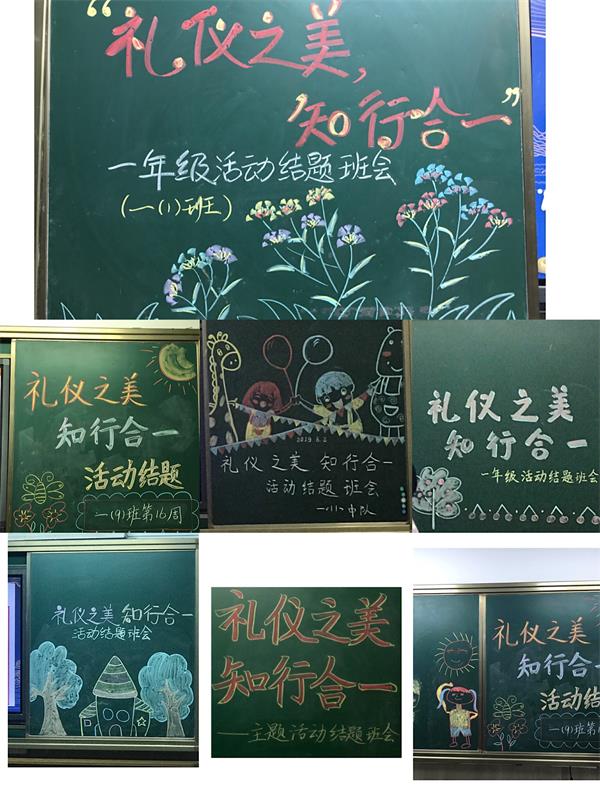 “礼仪之美,
知行合一”
一年级活动结题班会
(一(1)班)
礼仪之美
知行合一
活动结题
一(9)班第16周
2019.6.2
礼仪之美 知行合一
活动结题 班会
一(11)中队
礼仪之美
知行合一
一年级活动结题班会
礼仪之美 知行合一
活动结题班会
礼仪之美
知行合一
——主题活动结题班会
礼仪之美
知行合一
活动结
一(9)班第